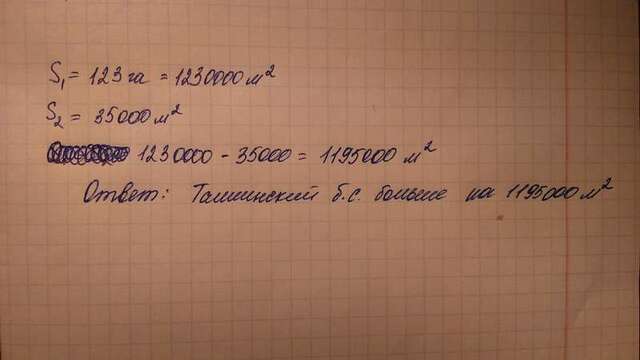 S₁ = 123 га = 1230000 м²
S₂ = 35000 м²
1230000 - 35000 = 1195000 м²
Ответ: б.с. больше на 1195000 м²